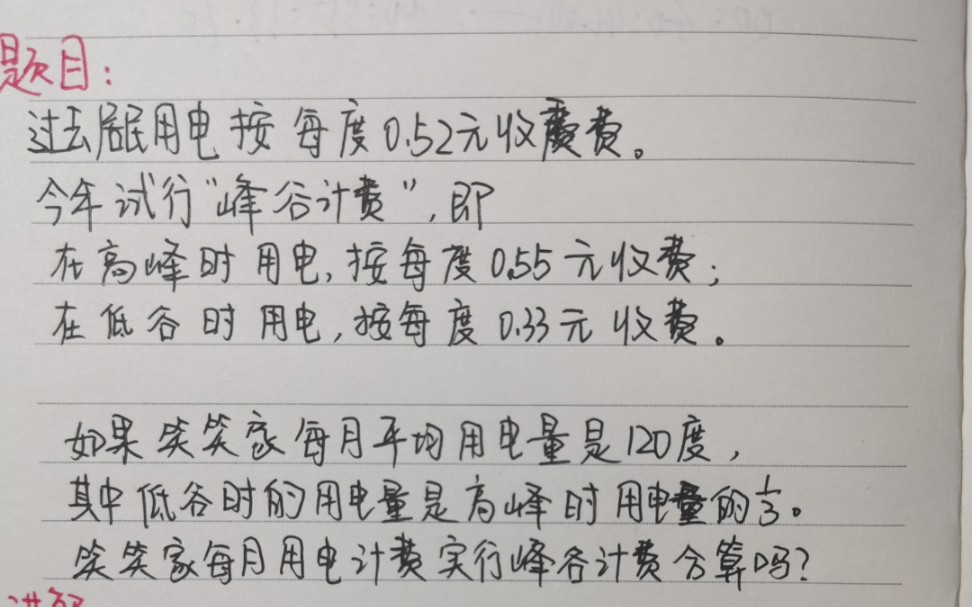 题目:
过去居民用电按每度0.52元收费。
今年试行“峰谷计费”,即
在高峰时用电,按每度0.55元收费;
在低谷时用电,按每度0.33元收费。
如果笑笑家每月平均用电量是120度,
其中低谷时的用电量是高峰时用电量的1/3。
笑笑家每月用电计费实行峰谷计费合算吗?